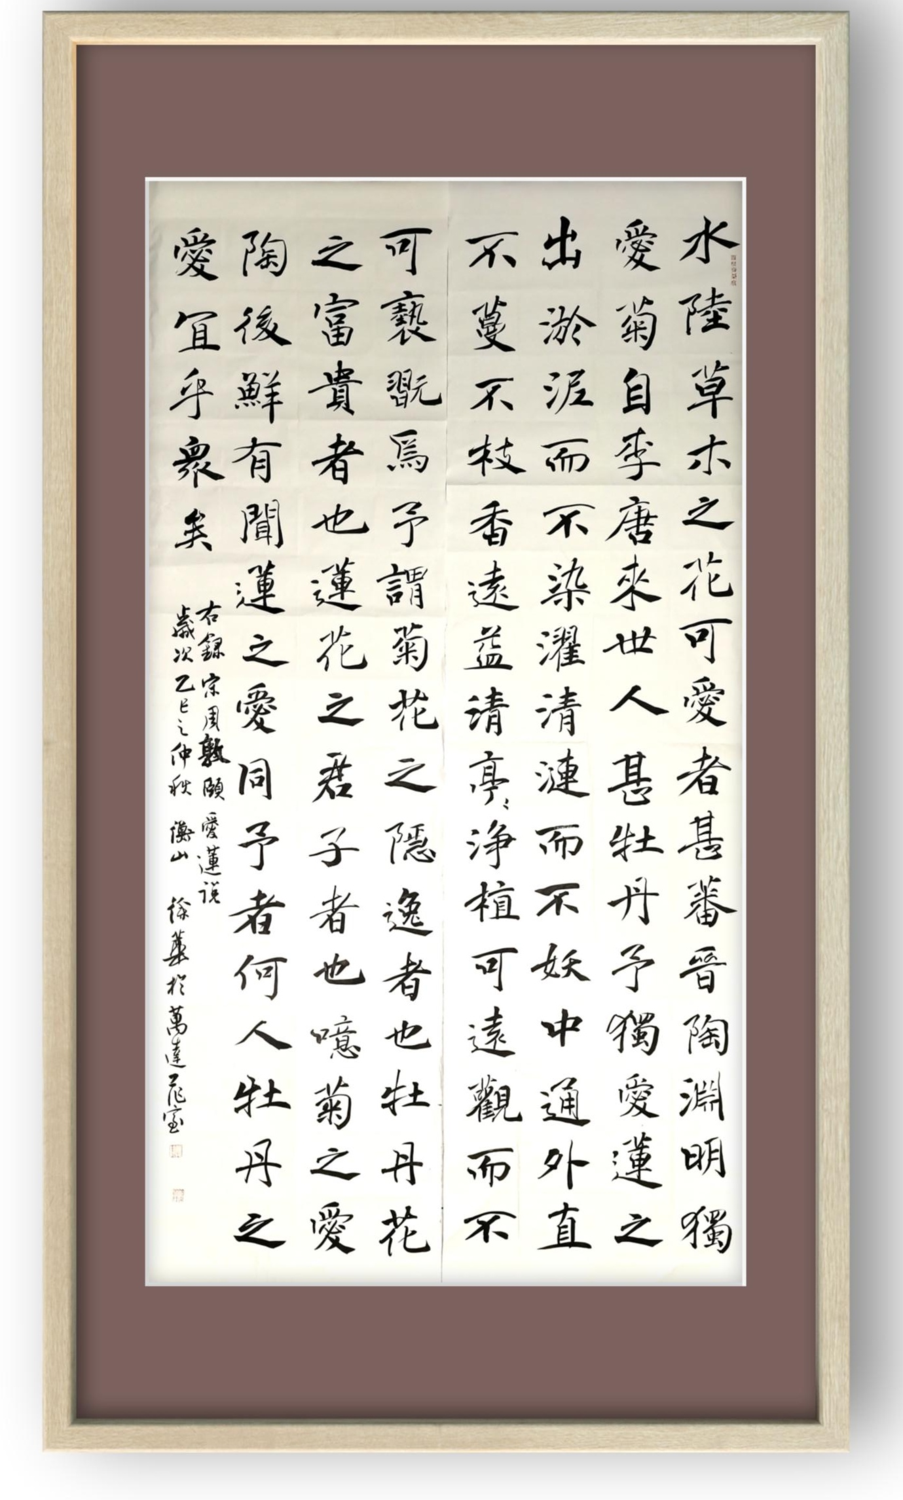 水陸草木之花可愛者甚蕃晉陶淵明獨
愛菊自李唐來世人甚牡丹予獨愛蓮之
出淤泥而不染濯清漣而不妖中通外直
不蔓不枝香遠益清亭〻淨植可遠觀而不
可褻翫焉予謂菊花之隱逸者也牡丹花
之富貴者也蓮花之君子者也噫菊之愛
陶後鮮有聞蓮之愛同予者何人牡丹之
愛宜乎衆矣
右錄宋周敦頤愛蓮說
歲次乙巳之仲秋 衡山 徐華於萬達工作室